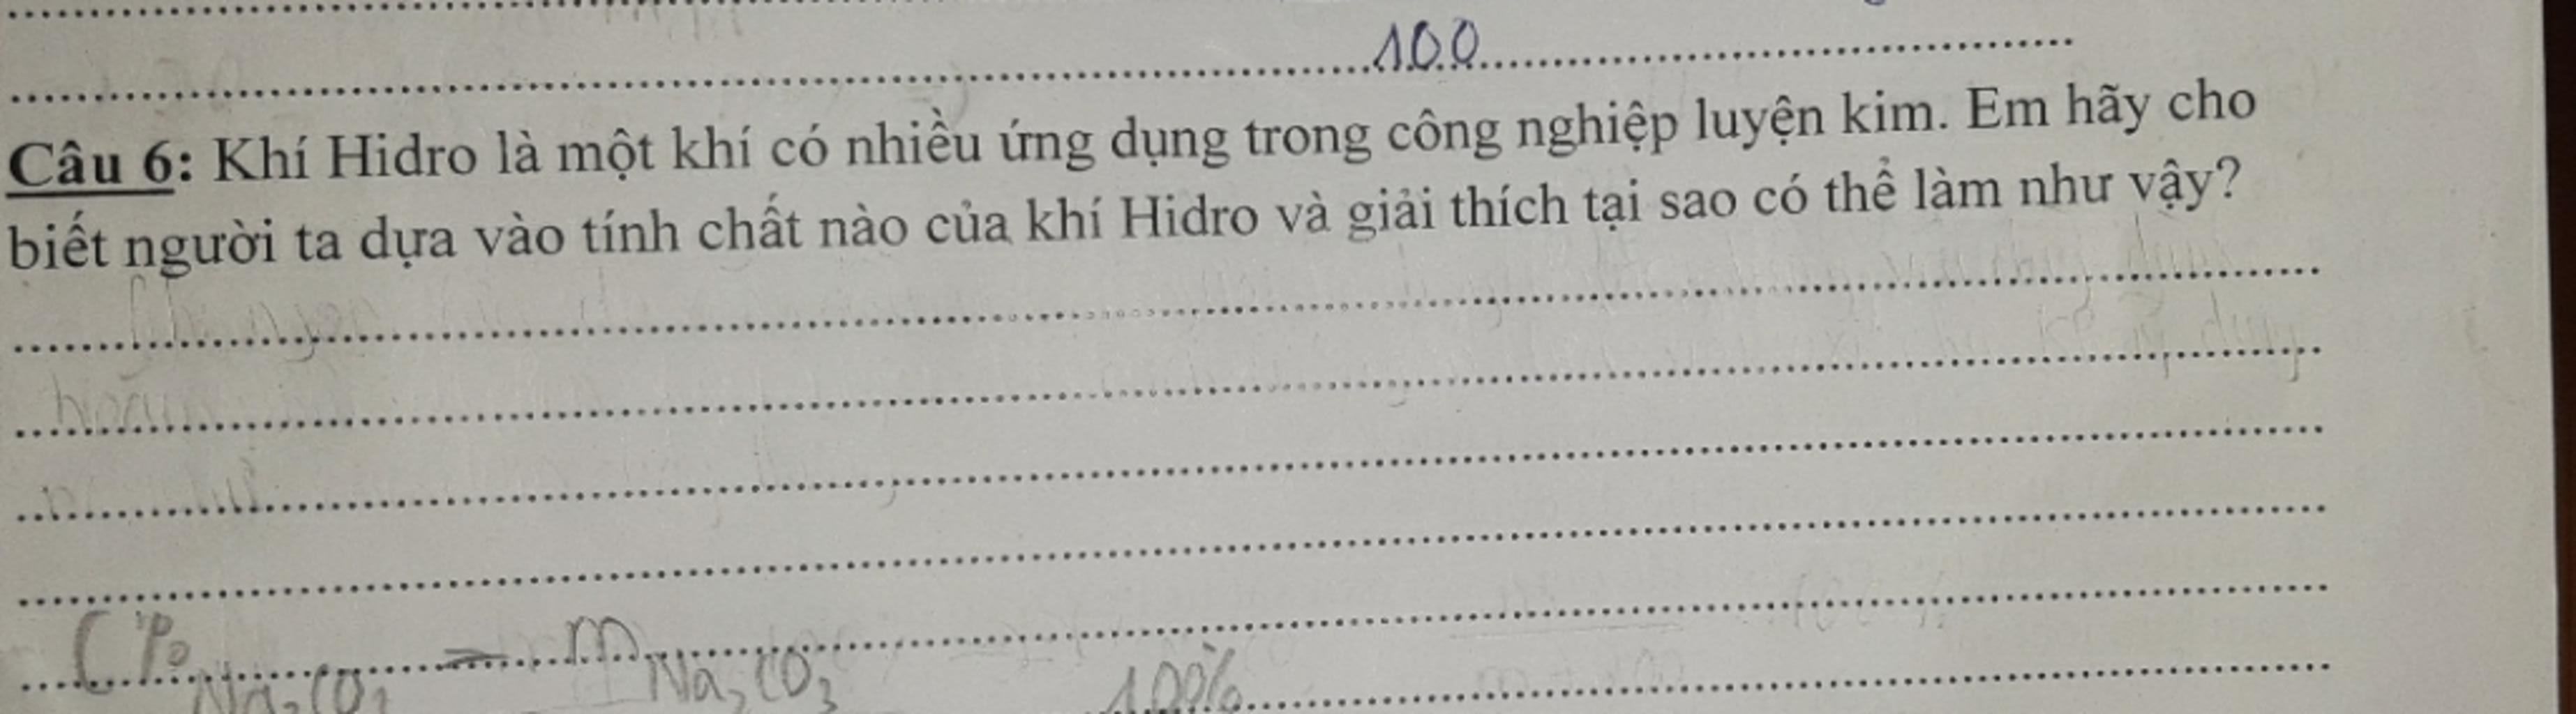 100
Câu 6: Khí Hidro là một khí có nhiều ứng dụng trong công nghiệp luyện kim. Em hãy cho
biết người ta dựa vào tính chất nào của khí Hidro và giải thích tại sao có thể làm như vậy?
C% = m
Na₂CO₃ Na₂CO₃ 100%